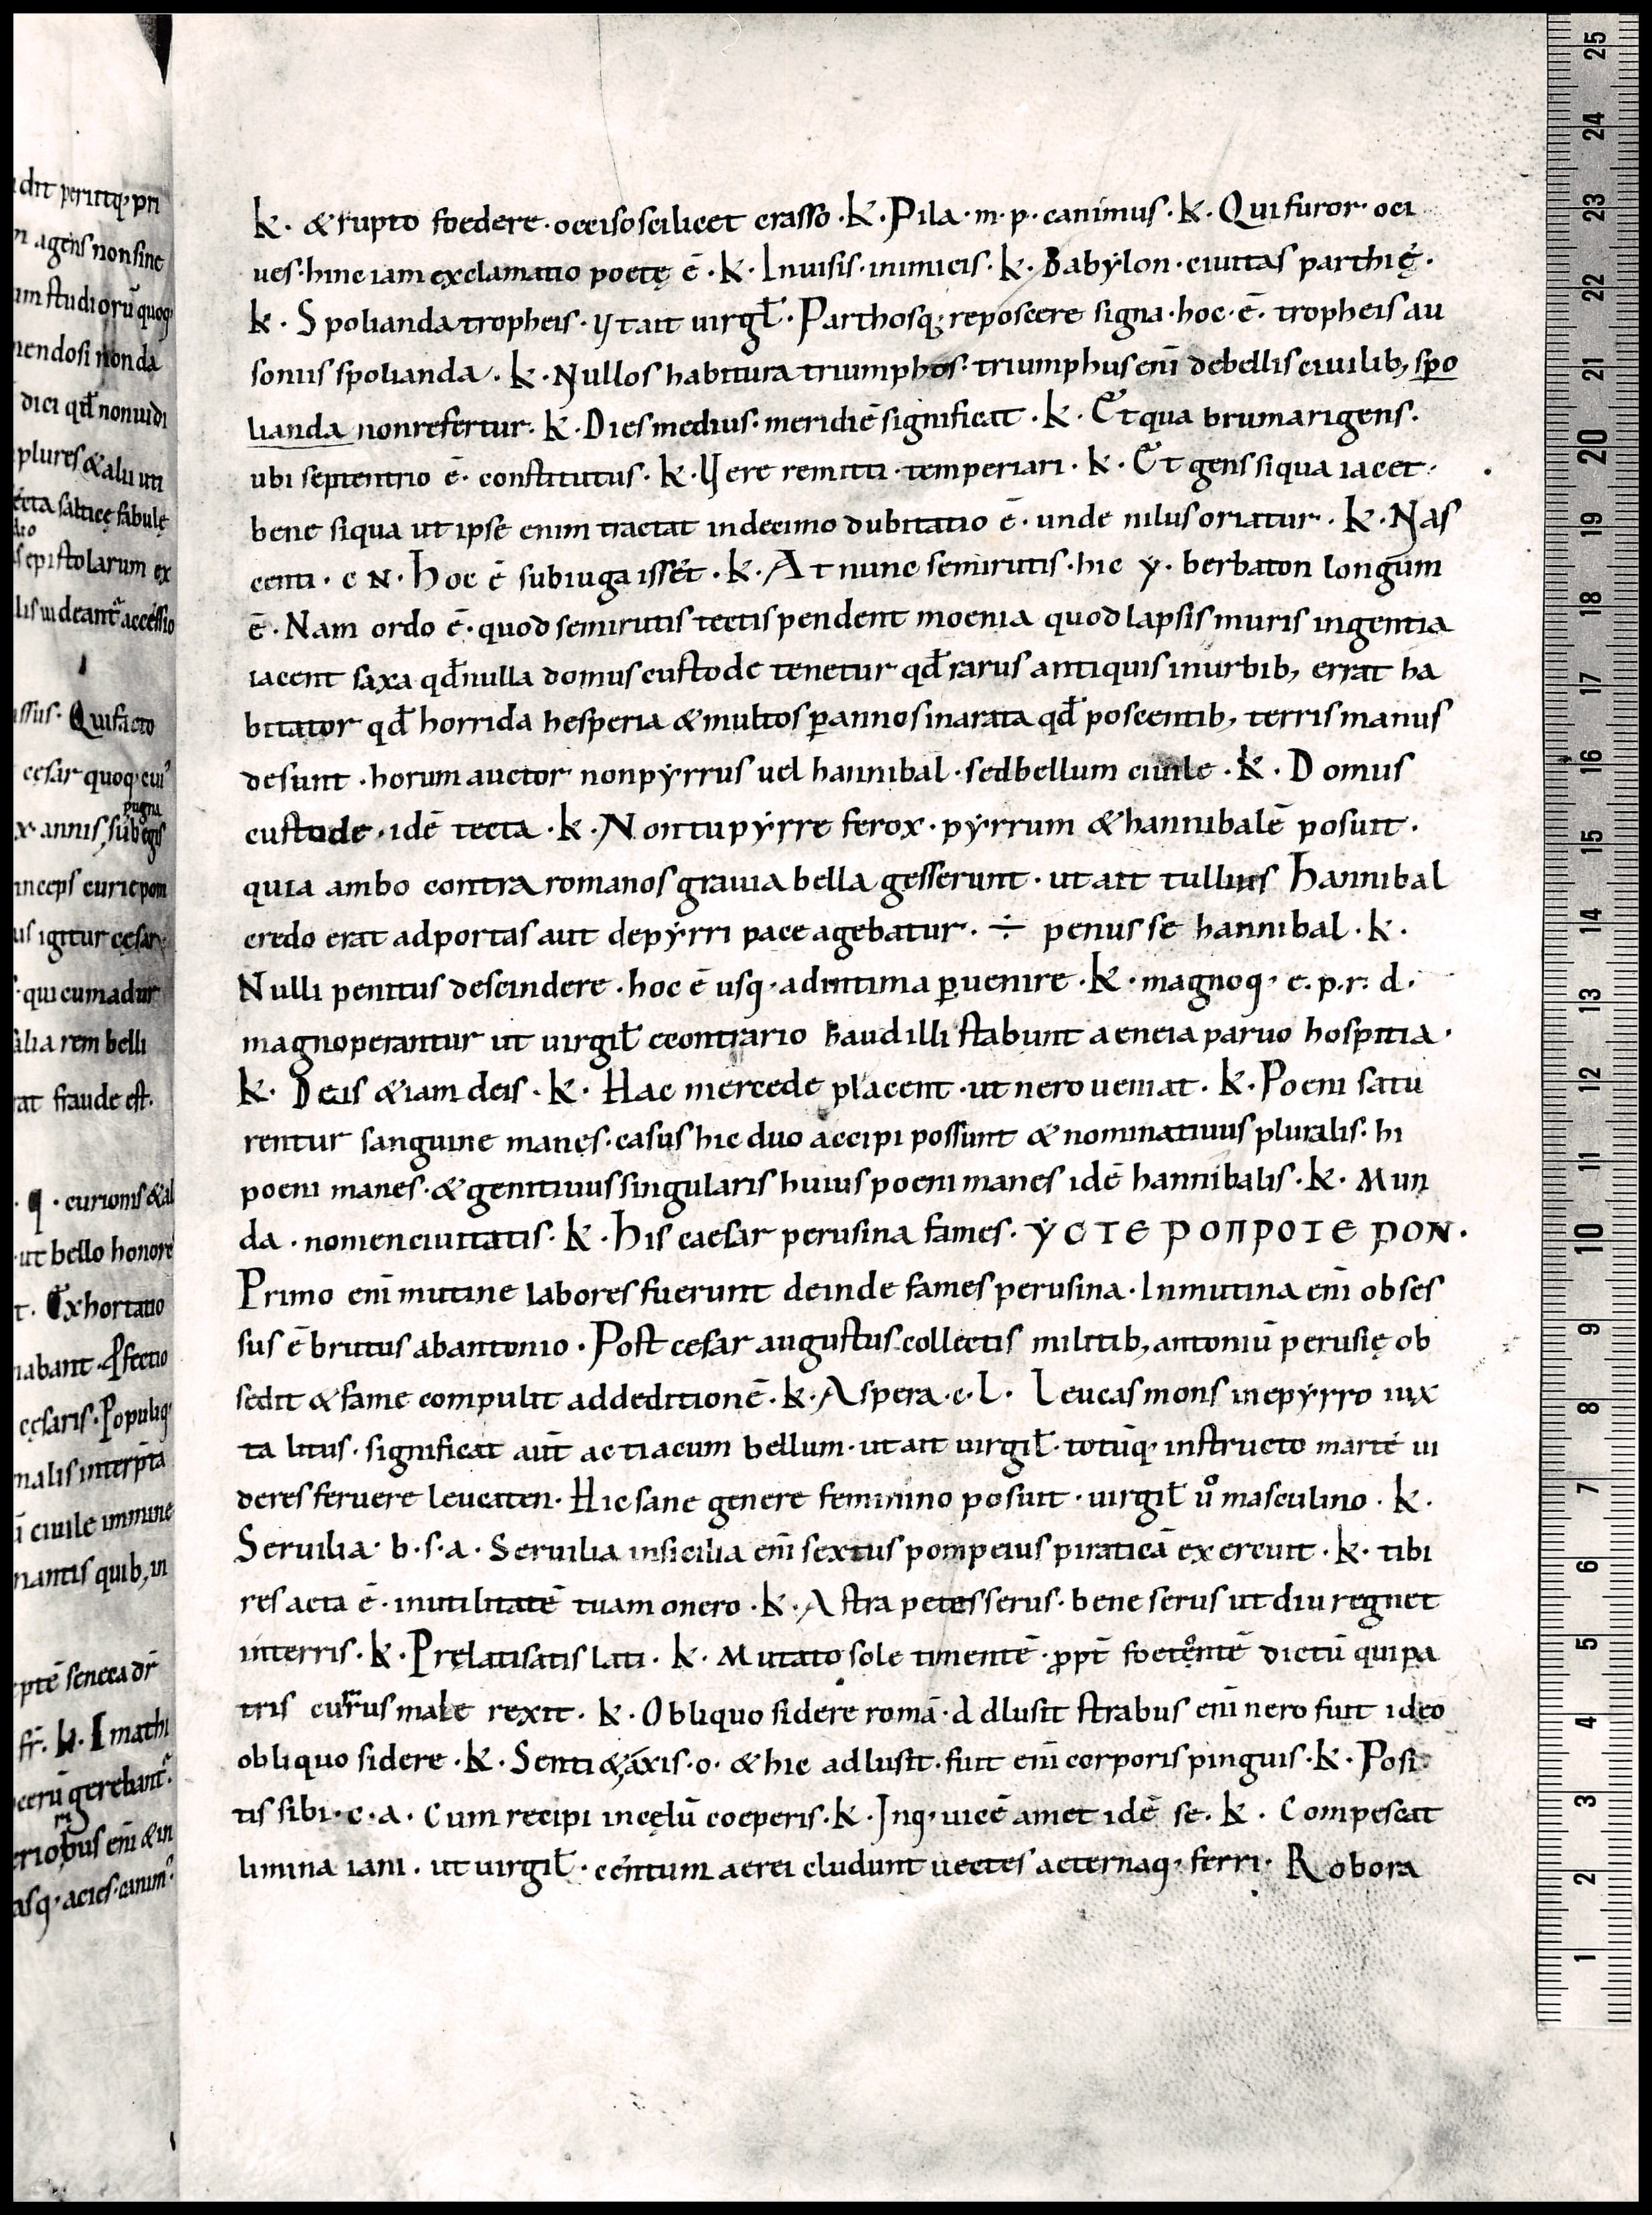 dit peritiq; pri
agens non sine
um studiorū quoq;
mendosi non da
dici qđ non uidi
plures & alii uti
secta satirice fabulę
epistolarum ex
lis uideant᷑ accessio
assus. Qui facto
cęsar quoq; cui
pugna
x annis, sub egis
inceps curie pom
us igitur cęsar
qui cum adur
alia rem belli
rat fraude est.
curionis & al
ut bello honore
t. Exhortatio
cęsaris. Populiq;
nalis interp̄ta
ciuile immune
nantis quib, in
epte seneca dr̄
cerū gerebant᷑.
eriobus enī & in
asq; acies. canim᷒
k. & rupto foedere. occiso scilicet crasso. k. Pila. m. p. canimus. k. Qui furor. o ci
ues. hinc iam exclamatio poetę ē. k. Inuisis. inimicis. k. Babẏlon. ciuitas parthię.
k. Spolianda tropheis. ẏt ait uirgł. Parthosq; reposcere signa. hoc. ē. tropheis au
soniis spolianda. k. Nullos habitura triumphos. triumphus enī de bellis ciuilib, spo
lianda non refertur. k. Dies medius. meridiē significat. k. Et qua bruma rigens.
ubi septentrio ē. constitutus. k. Ụere remitti. temperiari. k. Et gens siqua iacet.
bene siqua ut ipse enim tractat in decimo dubitatio ē. unde nilus oriatur. k. Nas
centi. c N. hoc ē sub iuga isset. k. At nunc semirutis. hic ẏ. berbaton longum
ē. Nam ordo ē. quod semirutis tectis pendent moenia quod lapsis muris ingentia
iacent saxa qđ nulla domus custode tenetur qđ rarus antiquis in urbib, errat ha
bitator qđ horrida hesperia & multos ꝑ annos inarata qđ poscentib, terris manus
desunt. horum auctor non pẏrrus uel hannibal. sed bellum ciuile. k. Domus
custode. idē tecta. k. Non tu pẏrre ferox. pẏrrum & hannibalē posuit.
quia ambo contra romanos grauia bella gesserunt. ut ait tullius hannibal
credo erat ad portas aut de pẏrri pace agebatur. ÷ penus se hannibal. k.
Nulli penitus descindere. hoc ē usq; ad intima ꝑuenire. k. magnoq; c. p. r. d.
magno perantur ut uirgił econtrario haud illi stabunt aeneia paruo hospitia.
k. Deis & iam deis. k. Hac mercede placent. ut nero ueniat. k. Poeni satu
rentur sanguine manes. casus hic duo accipi possunt & nominatiuus pluralis. hi
poeni manes. & genitiuus singularis huius poeni manes idē hannibalis. k. Mun
da. nomen ciuitatis. k. His caesar perusina fames. ẎCTE POΠPOTE PON.
Primo enī mutine labores fuerunt deinde fames perusina. In mutina enī obses
sus ē brutus ab antonio. Post cesar augustus collectis militib, antoniū perusię ob
sedit & fame compulit ad deditionē. k. Aspera. c. L. Leucas mons in epẏrro iux
ta litus. significat aut̄ actiacum bellum. ut ait uirgił. totūq; instructo marte ui
deres feruere leucaten. Hic sane genere feminino posuit. uirgił u̇̊ masculino. k.
Seruilia. b. s. a. Seruilia in sicilia enī sextus pompeius piraticā exercuit. k. tibi
res acta ē. in utilitatē tuam onero. k. Astra petes serus. bene serus ut diu regnet
in terris. k. Prelati satis lati. k. Mutato sole timentē. ꝓpt̄ foetontē dictū qui pa
tris currus male rexit. k. Obliquo sidere romā. ad dlusit strabus enī nero fuit ideo
obliquo sidere. k. Senti & axis. o. & hic adlusit. fuit enī corporis pinguis. k. Posi
tis sibi. c. a. Cum recipi in cęlū coeperis. k. Inq; uicē amet idē se. k. Compescat
limina iani. ut uirgił. centum aerei cludunt uectes aeternaq; ferri. Robora
25
24
23
22
21
20
19
18
17
16
15
14
13
12
11
10
9
8
7
6
5
4
3
2
1